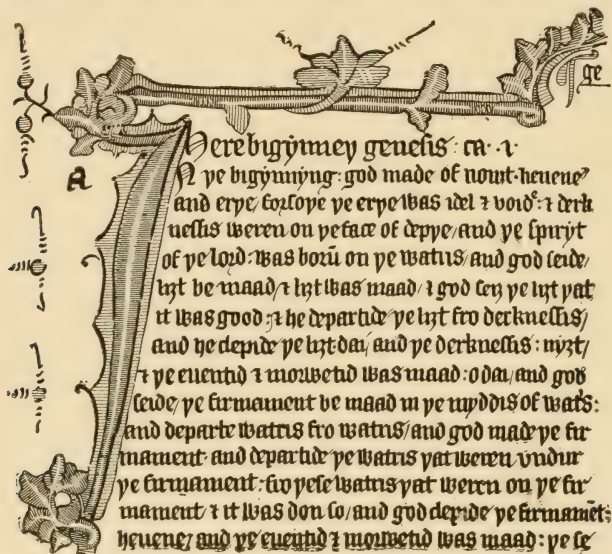 ge
Here bigynney genesis: ca. 1
A
In ye bigynnyng: god made of nouȝt. heuene
and erye, forsoye ye erye was idel ⁊ void: ⁊ derk
nessis weren on ye face of depye, and ye spiryt
of ye lord: was born̄ on ye watris, and god seide/
liȝt be maad/ ⁊ liȝt was maad/ ⁊ god seȝ ye liȝt yat
it was good: ⁊ he departide ye liȝt fro derknessis/
and he clepide ye liȝt. dai/ and ye derknessis: nyȝt/
⁊ ye euentid ⁊ morwetid was maad: o dai, and god
seide/ ye firmament be maad in ye myddis of wat͛s:
and departe watris fro watris/ and god made ye fir
mament. and departide ye watris yat weren vndur
ye firmament: fro yese watris yat weren on ye fir
mament, ⁊ it was don so/ and god clepide ye firmamēt:
heuene/ and ye euentid ⁊ morwetid was maad: ye se